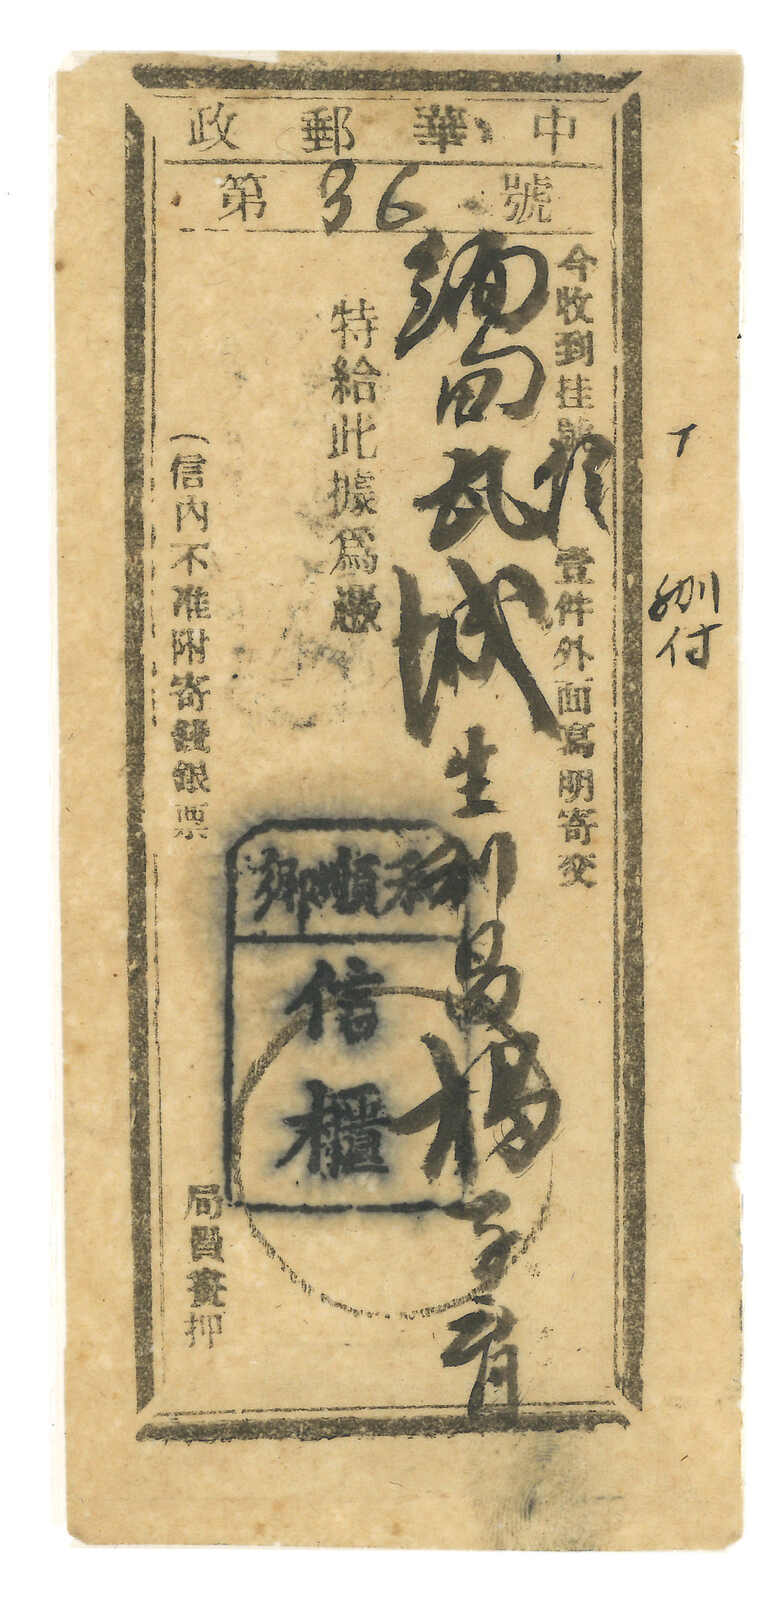 中華郵政
第36號
今收到挂號信壹件外面寫明寄交
緬甸瓦城生利昌楊子有
特給此據爲憑
(信內不准附寄錢銀票
局員畫押
和順鄉
信櫃
付